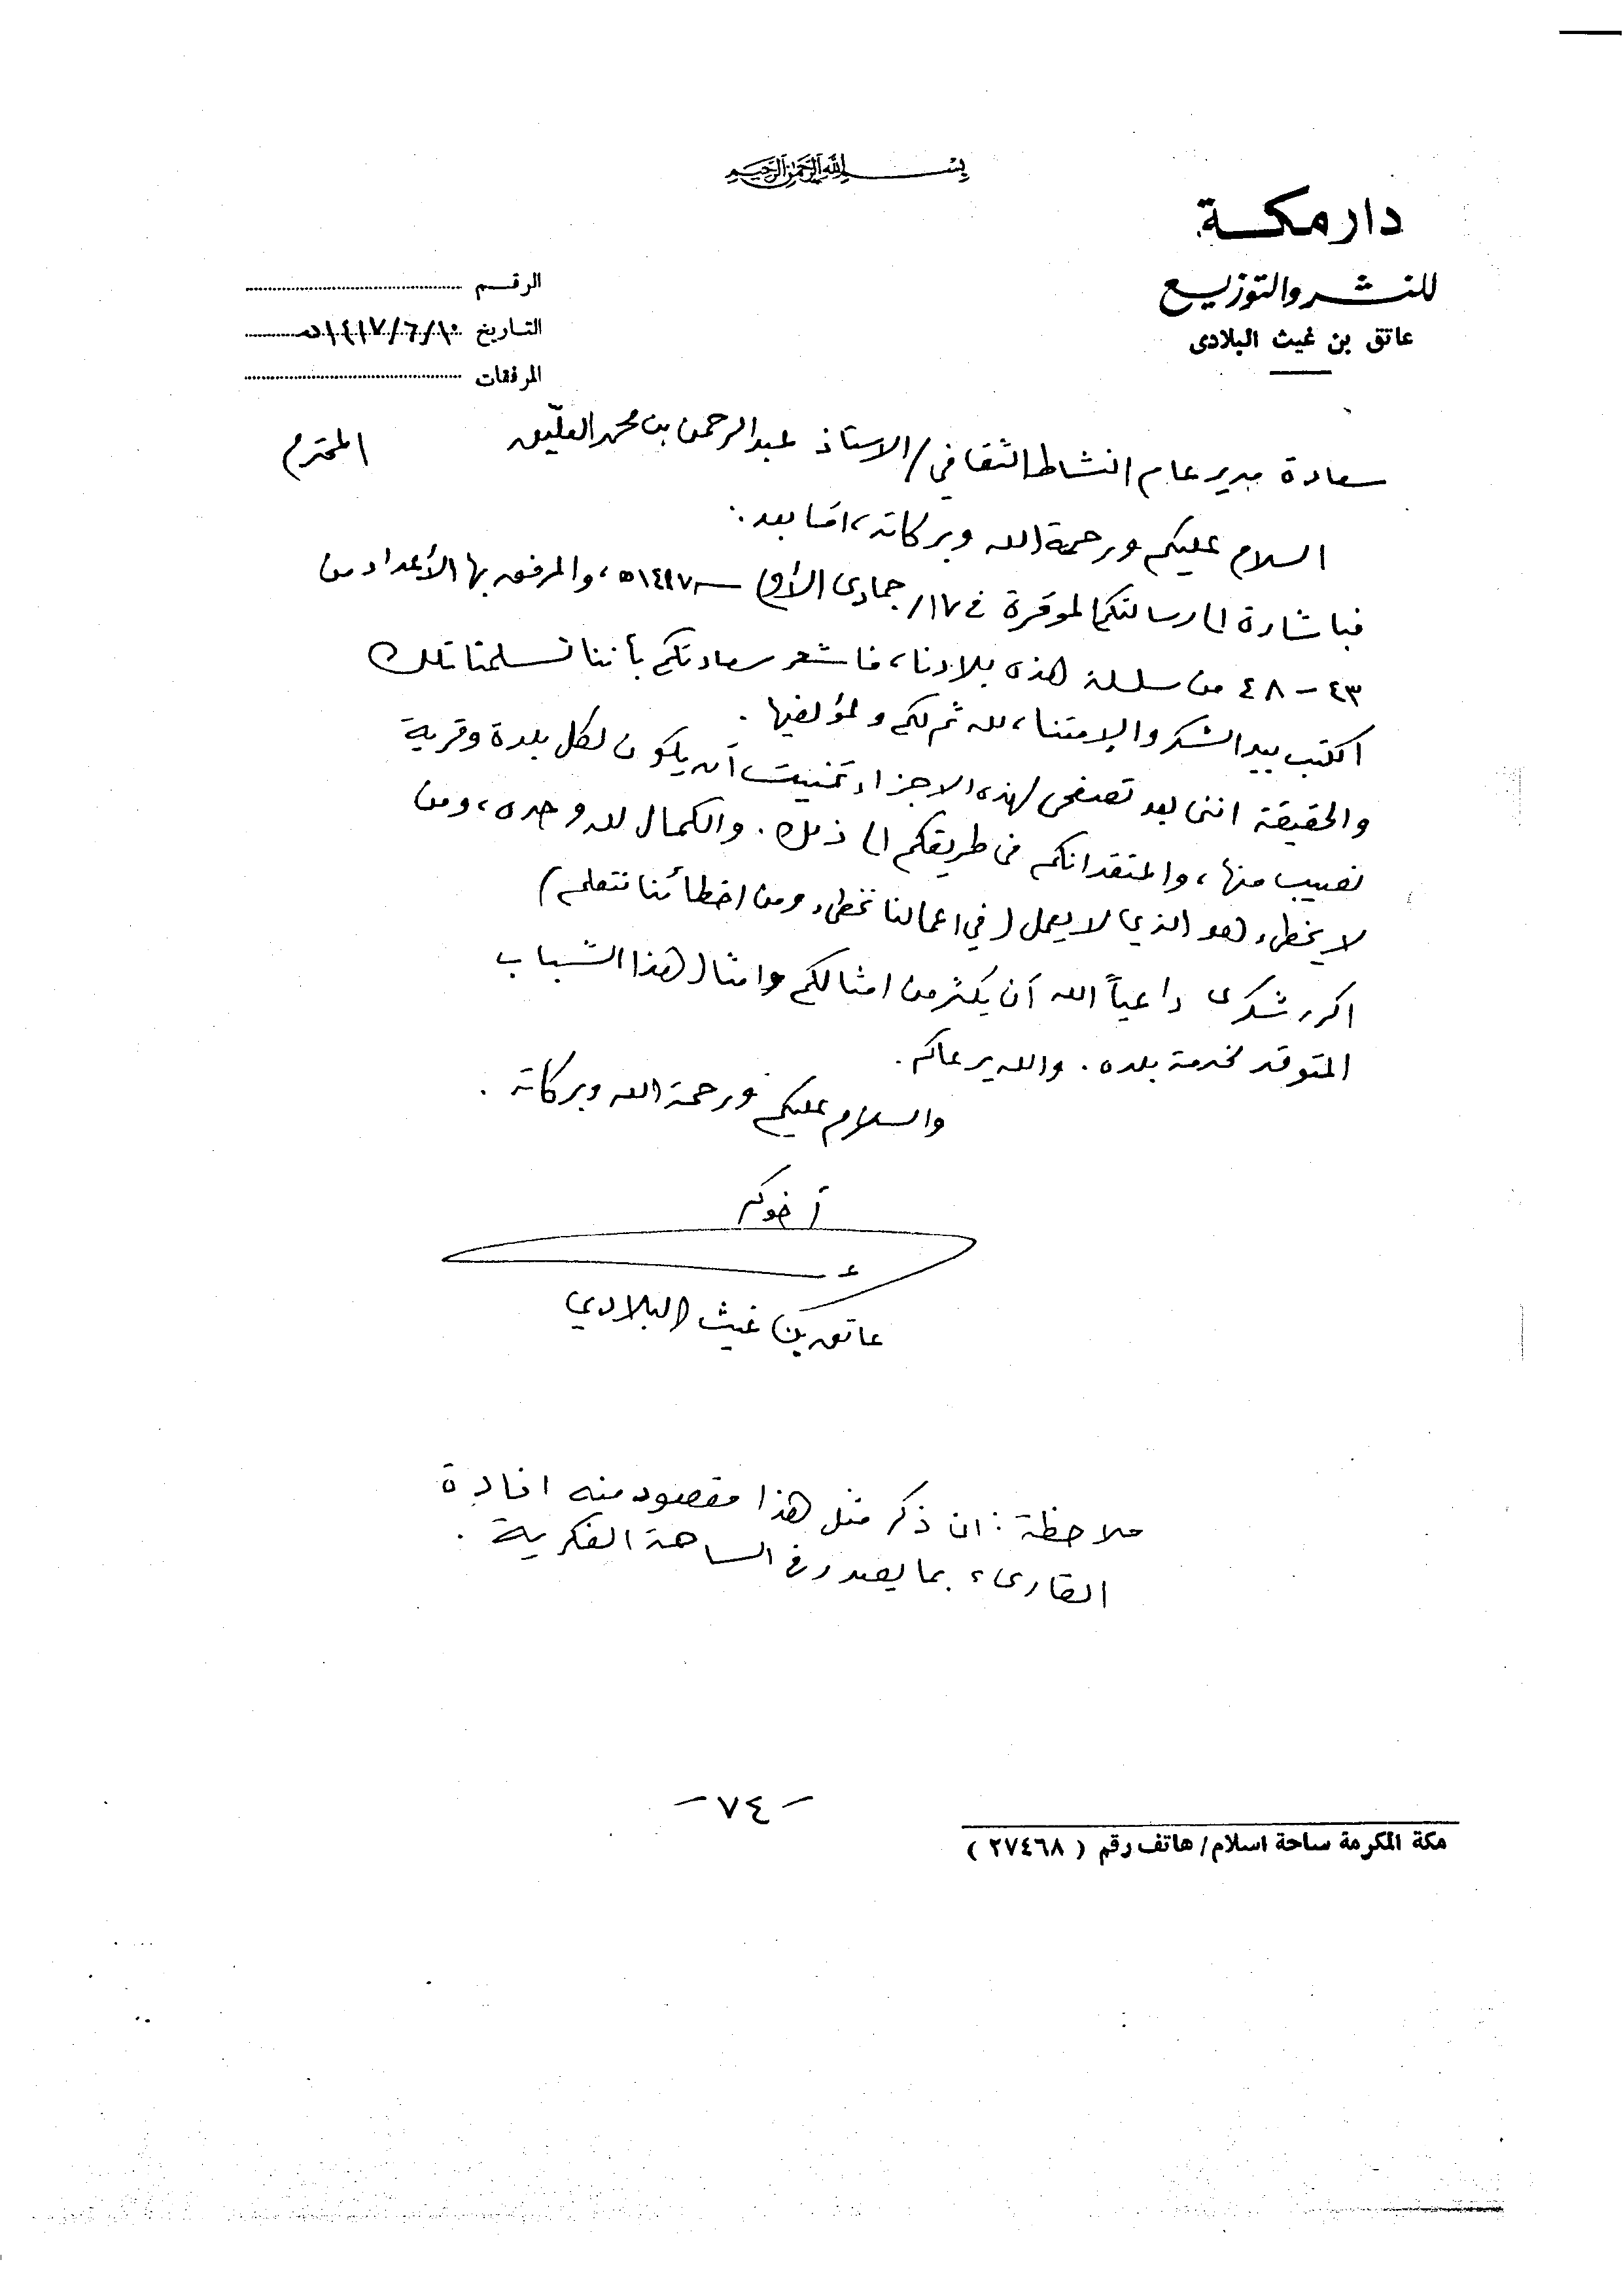 بسم الله الرحمن الرحيم
دار مكة
للنشر والتوزيع
عاتق بن غيث البلادى
الرقم
التاريخ ١٤١٧/٦/١٠هـ
المرفقات
سعادة مدير عام النشاط الثقافي / الاستاذ عبدالرحمن بن محمد العليق المحترم
السلام عليكم ورحمة الله وبركاته، امّا بعد :
فباشارة الى رسالتكم الموقرة في ١٧/ جمادى الأولى سنة ١٤١٧هـ، والمرفق بها الأعداد من
٤٣ - ٤٨ من سلسلة هذه بلادنا، فاشعر سعادتكم بأننا تسلمنا تلك
الكتب بيد الشكر والإمتنا، لله ثم لكم ولمؤلفيها .
والحقيقة انني بعد تصفحي لهذه الاجزاء تمنيت أن يكون لكل بلدة وقرية
نصيب منها، واعتقد انكم في طريقكم الى ذلك . والكمال لله وحده، ومن
لا يخطىء هو الذي لا يعمل (في اعمالنا نخطىء ومن اخطائنا نتعلم)
اكرر شكرى داعياً الله أن يكثر من امثالكم وامثال هذا الشباب
المتوقد لخدمة بلده . والله يرعاكم .
والسلام عليكم ورحمة الله وبركاته .
أخوكم
عاتق بن غيث البلادي
ملاحظة : ان ذكر مثل هذا مقصود منه افادة
القارىء بما يصدر في الساحة الفكرية .
- ٧٤ -
مكة المكرمة ساحة اسلام / هاتف رقم ( ٢٧٤٦٨ )